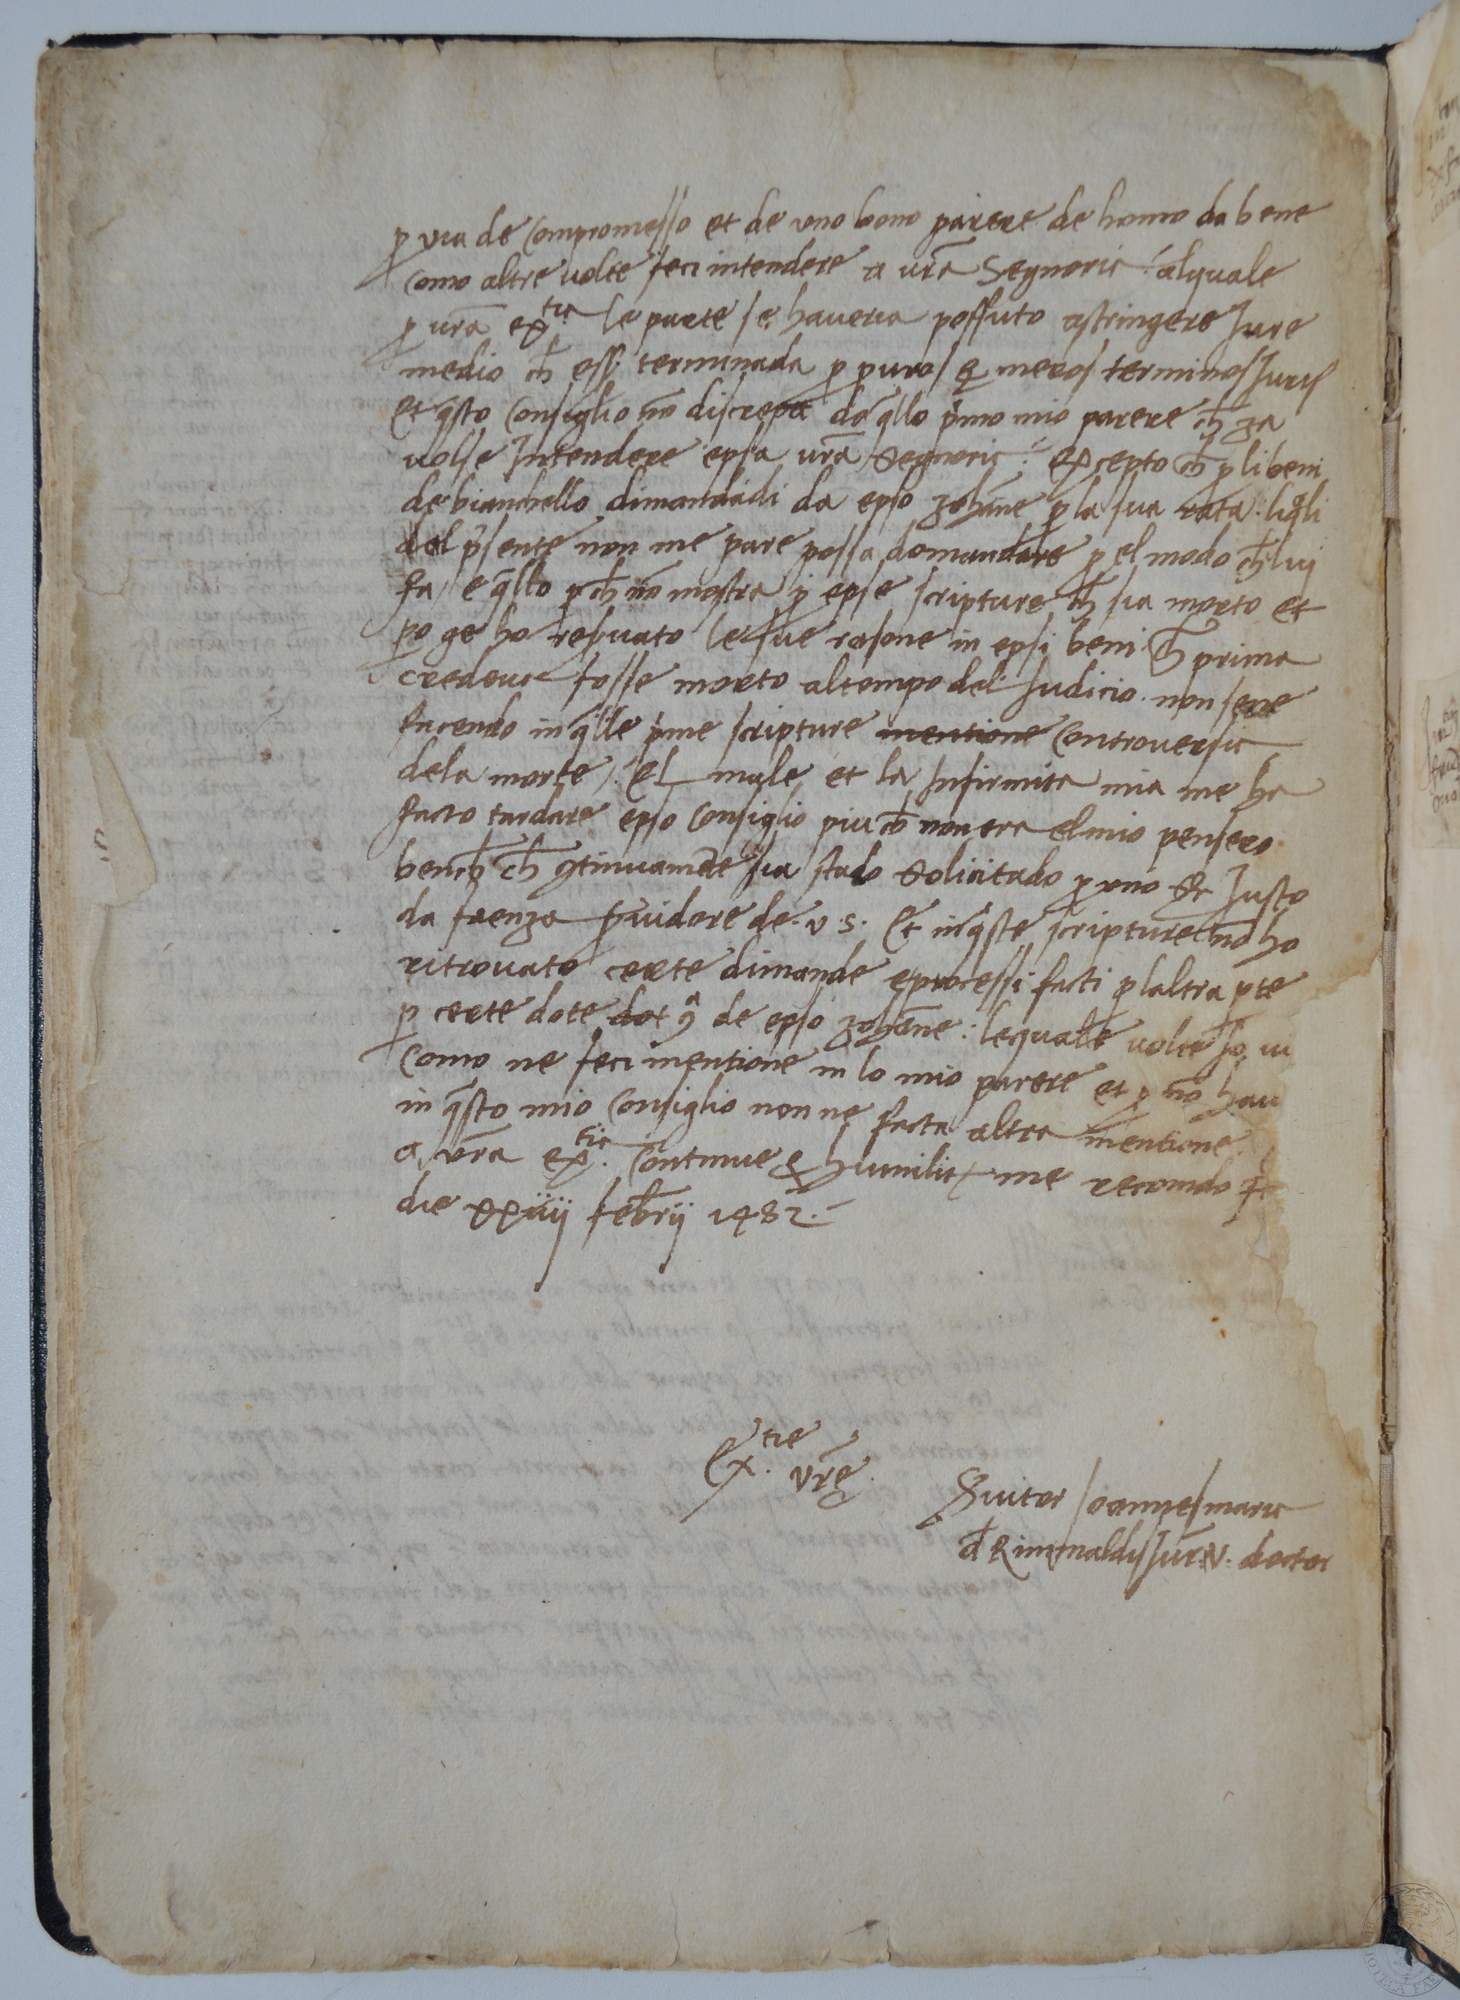 ꝑ via de compromesso et de uno bono parere de homo da bene
como altre volte feci intendere a vrã Segnoria: alquale
ꝑ vrã ex.tia le parte se haveria possuto astringere Jure
medio ch̃ essẽ terminada ꝑ puros & meros terminos Juris
et q̃sto Consiglio nõ discrepa da q̃llo p̃mo mio parere ch̃ za
volse Intendere epsa vrã Segnoria: excepto ch̃ ꝑ li beni
de bianchello dimandadi da epso zohãne ꝑ la sua rata: liq̃li
del p̃sente non me pare possa domandare ꝑ el modo ch̃ lui
fa / e q̃llo ꝑch̃ nõ mostra ꝑ epse scripture ch̃ sia morto et
ꝑo ge ho res̃vato le sue rasone in epsi beni ch̃ prima
credeva fosse morto al tempo del Judicio. non se ne
facendo in q̃lle p̃me scripture mentione controversia
dela morte /. El male et la Infirmita mia me ha
facto tardare epso Consiglio piu ch̃ non era el mio pensero.
bench̃ ch̃ ꝯtinuamẽte sia stado solicitado ꝑ uno S̃r Justo
da faenza ꝓvidore de .v.s. Et in q̃ste scripture nõ ho
ritrovato certe dimande e processi facti ꝑ laltra ꝑte
ꝑ certe dote de epso zohãne: lequale volte Jo vi
Como ne feci mentione in lo mio parere et ꝑ nõ hav
in q̃sto mio Consiglio non ne facta altra mentione.
a vrã ex.tia Continue & humilit̃ me recõmdo
die xxiiij feb̃rij 1482.
Ex.tie vrẽ.
S̃vitor Joannesmaria
d̃ Riminaldis Jur̃.V. doctor